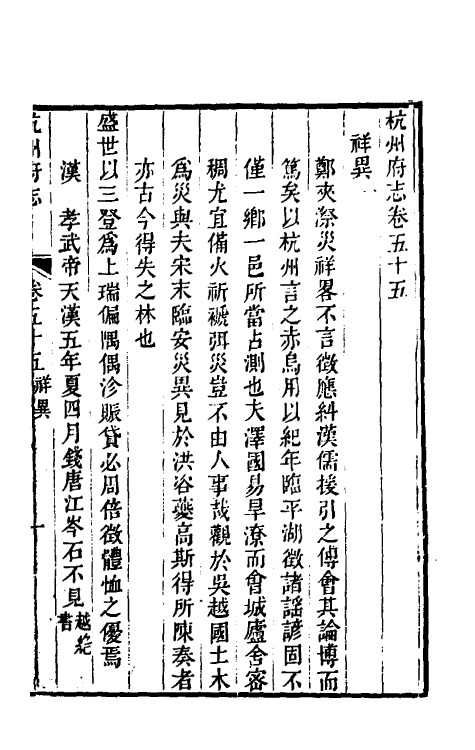 杭州府志卷五十五
祥異
鄭夾漈災祥畧不言徵應糾漢儒援引之傅會其論博而
篤矣以杭州言之赤烏用以紀年臨平湖徵諸謡諺固不
僅一鄉一邑所當占測也夫澤國易旱潦而會城廬舍密
稠尤宜備火祈禳弭災豈不由人事哉觀於吳越國土木
爲災與夫宋末臨安災異見於洪咨夔高斯得所陳奏者
亦古今得失之林也
盛世以三登爲上瑞偏隅偶沴賑貸必周倍徵體恤之優焉
漢　孝武帝天漢五年夏四月錢唐江岑石不見越絶書
杭州府志　卷五十五祥異　一